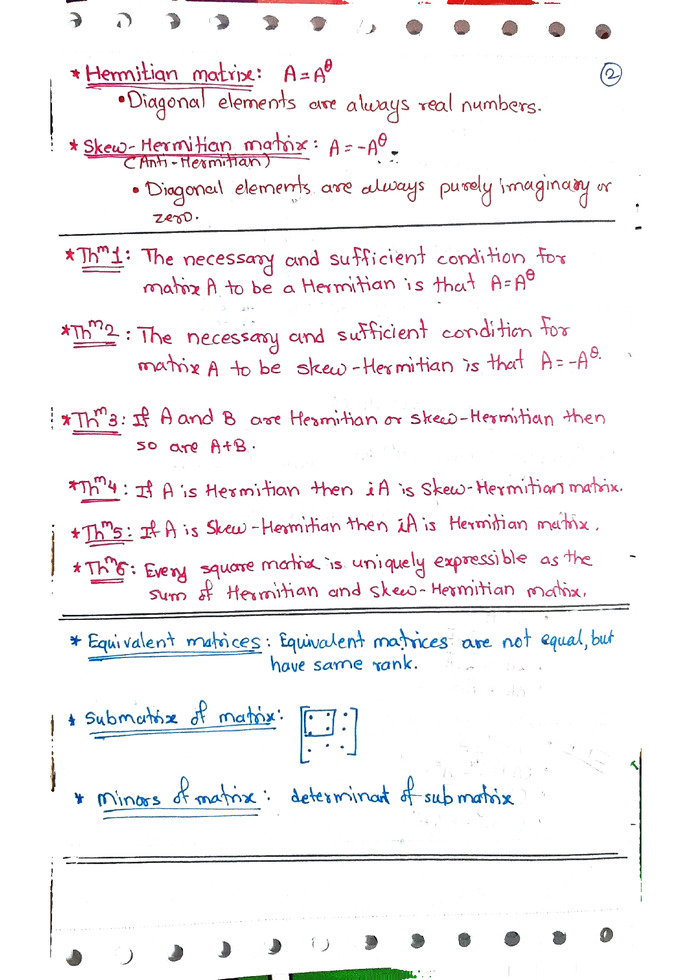 * Hermitian matrix: A=A^θ
②
•Diagonal elements are always real numbers.
* Skew-Hermitian matrix: A=-A^θ.
(Anti-Hermitian)
• Diagonal elements are always purely imaginary or
zero.
*Th^m 1: The necessary and sufficient condition for
matrix A to be a Hermitian is that A=A^θ
*Th^m 2: The necessary and sufficient condition for
matrix A to be skew-Hermitian is that A=-A^θ.
*Th^m 3: If A and B are Hermitian or skew-Hermitian then
so are A+B.
*Th^m 4: If A is Hermitian then iA is Skew-Hermitian matrix.
*Th^m 5: If A is Skew-Hermitian then iA is Hermitian matrix.
*Th^m 6: Every square matrix is uniquely expressible as the
sum of Hermitian and skew-Hermitian matrix.
* Equivalent matrices: Equivalent matrices are not equal, but
have same rank.
* Submatrix of matrix:
* Minors of matrix: determinant of submatrix